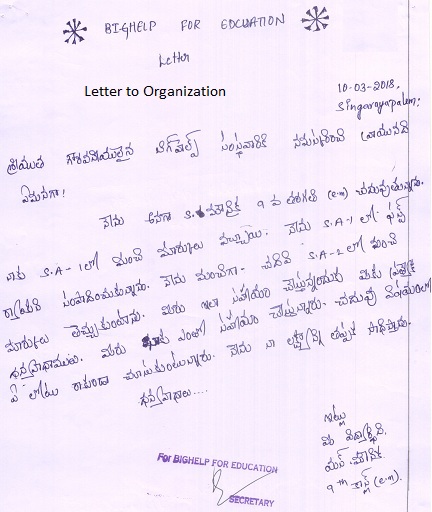 BIGHELP FOR EDCUATION
Letter
Letter to Organization
10-03-2018,
Singarayapalem,
శ్రీయుత గౌరవనీయులైన బిగ్‌హెల్ప్ సంస్థవారికి నమస్కరించి వ్రాయునది
ఏమనగా!
నేను అనగా S. మౌనిక 9 వ తరగతి (e.m) చదువుతున్నాను.
నాకు S.A-1 లో మంచి మార్కులు వచ్చాయి. నేను S.A-1 లో ఫస్ట్
ర్యాంకు సంపాదించుకున్నాను. నేను మంచిగా చదివి S.A-2 లో మంచి
మార్కులు తెచ్చుకుంటాను. మీరు ఇలా సహాయం చేస్తున్నందుకు మీకు
ధన్యవాదాములు. మీరు మాకు ఎంతో సహాయం చేస్తున్నారు. చదువు విషయంలో
ఏ లోటు రాకుండా చూసుకుంటున్నారు. నేను నా లక్ష్యాన్ని తప్పక సాధిస్తాను.
ధన్యవాదాలు....
ఇట్లు
మీ విద్యార్థిని,
యస్. మౌనిక
9th క్లాస్ (e.m).
For BIGHELP FOR EDUCATION
SECRETARY